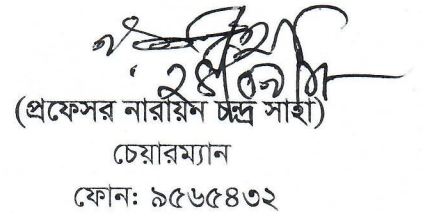 (প্রফেসর নারায়ন চন্দ্র সাহা)
চেয়ারম্যান
ফোন: ৯৫৬৫৪৩২